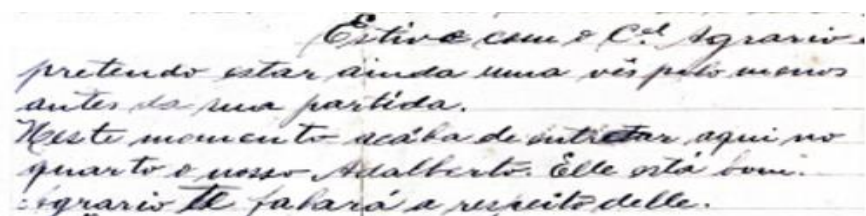 Estive com o C.el Agrario.
pretendo estar ainda uma vês pelo menos
antes da sua partida.
Neste momento acába de entrar aqui no
quarto o nosso Adalberto. Elle está bom.
Agrario te falará a respeito delle.